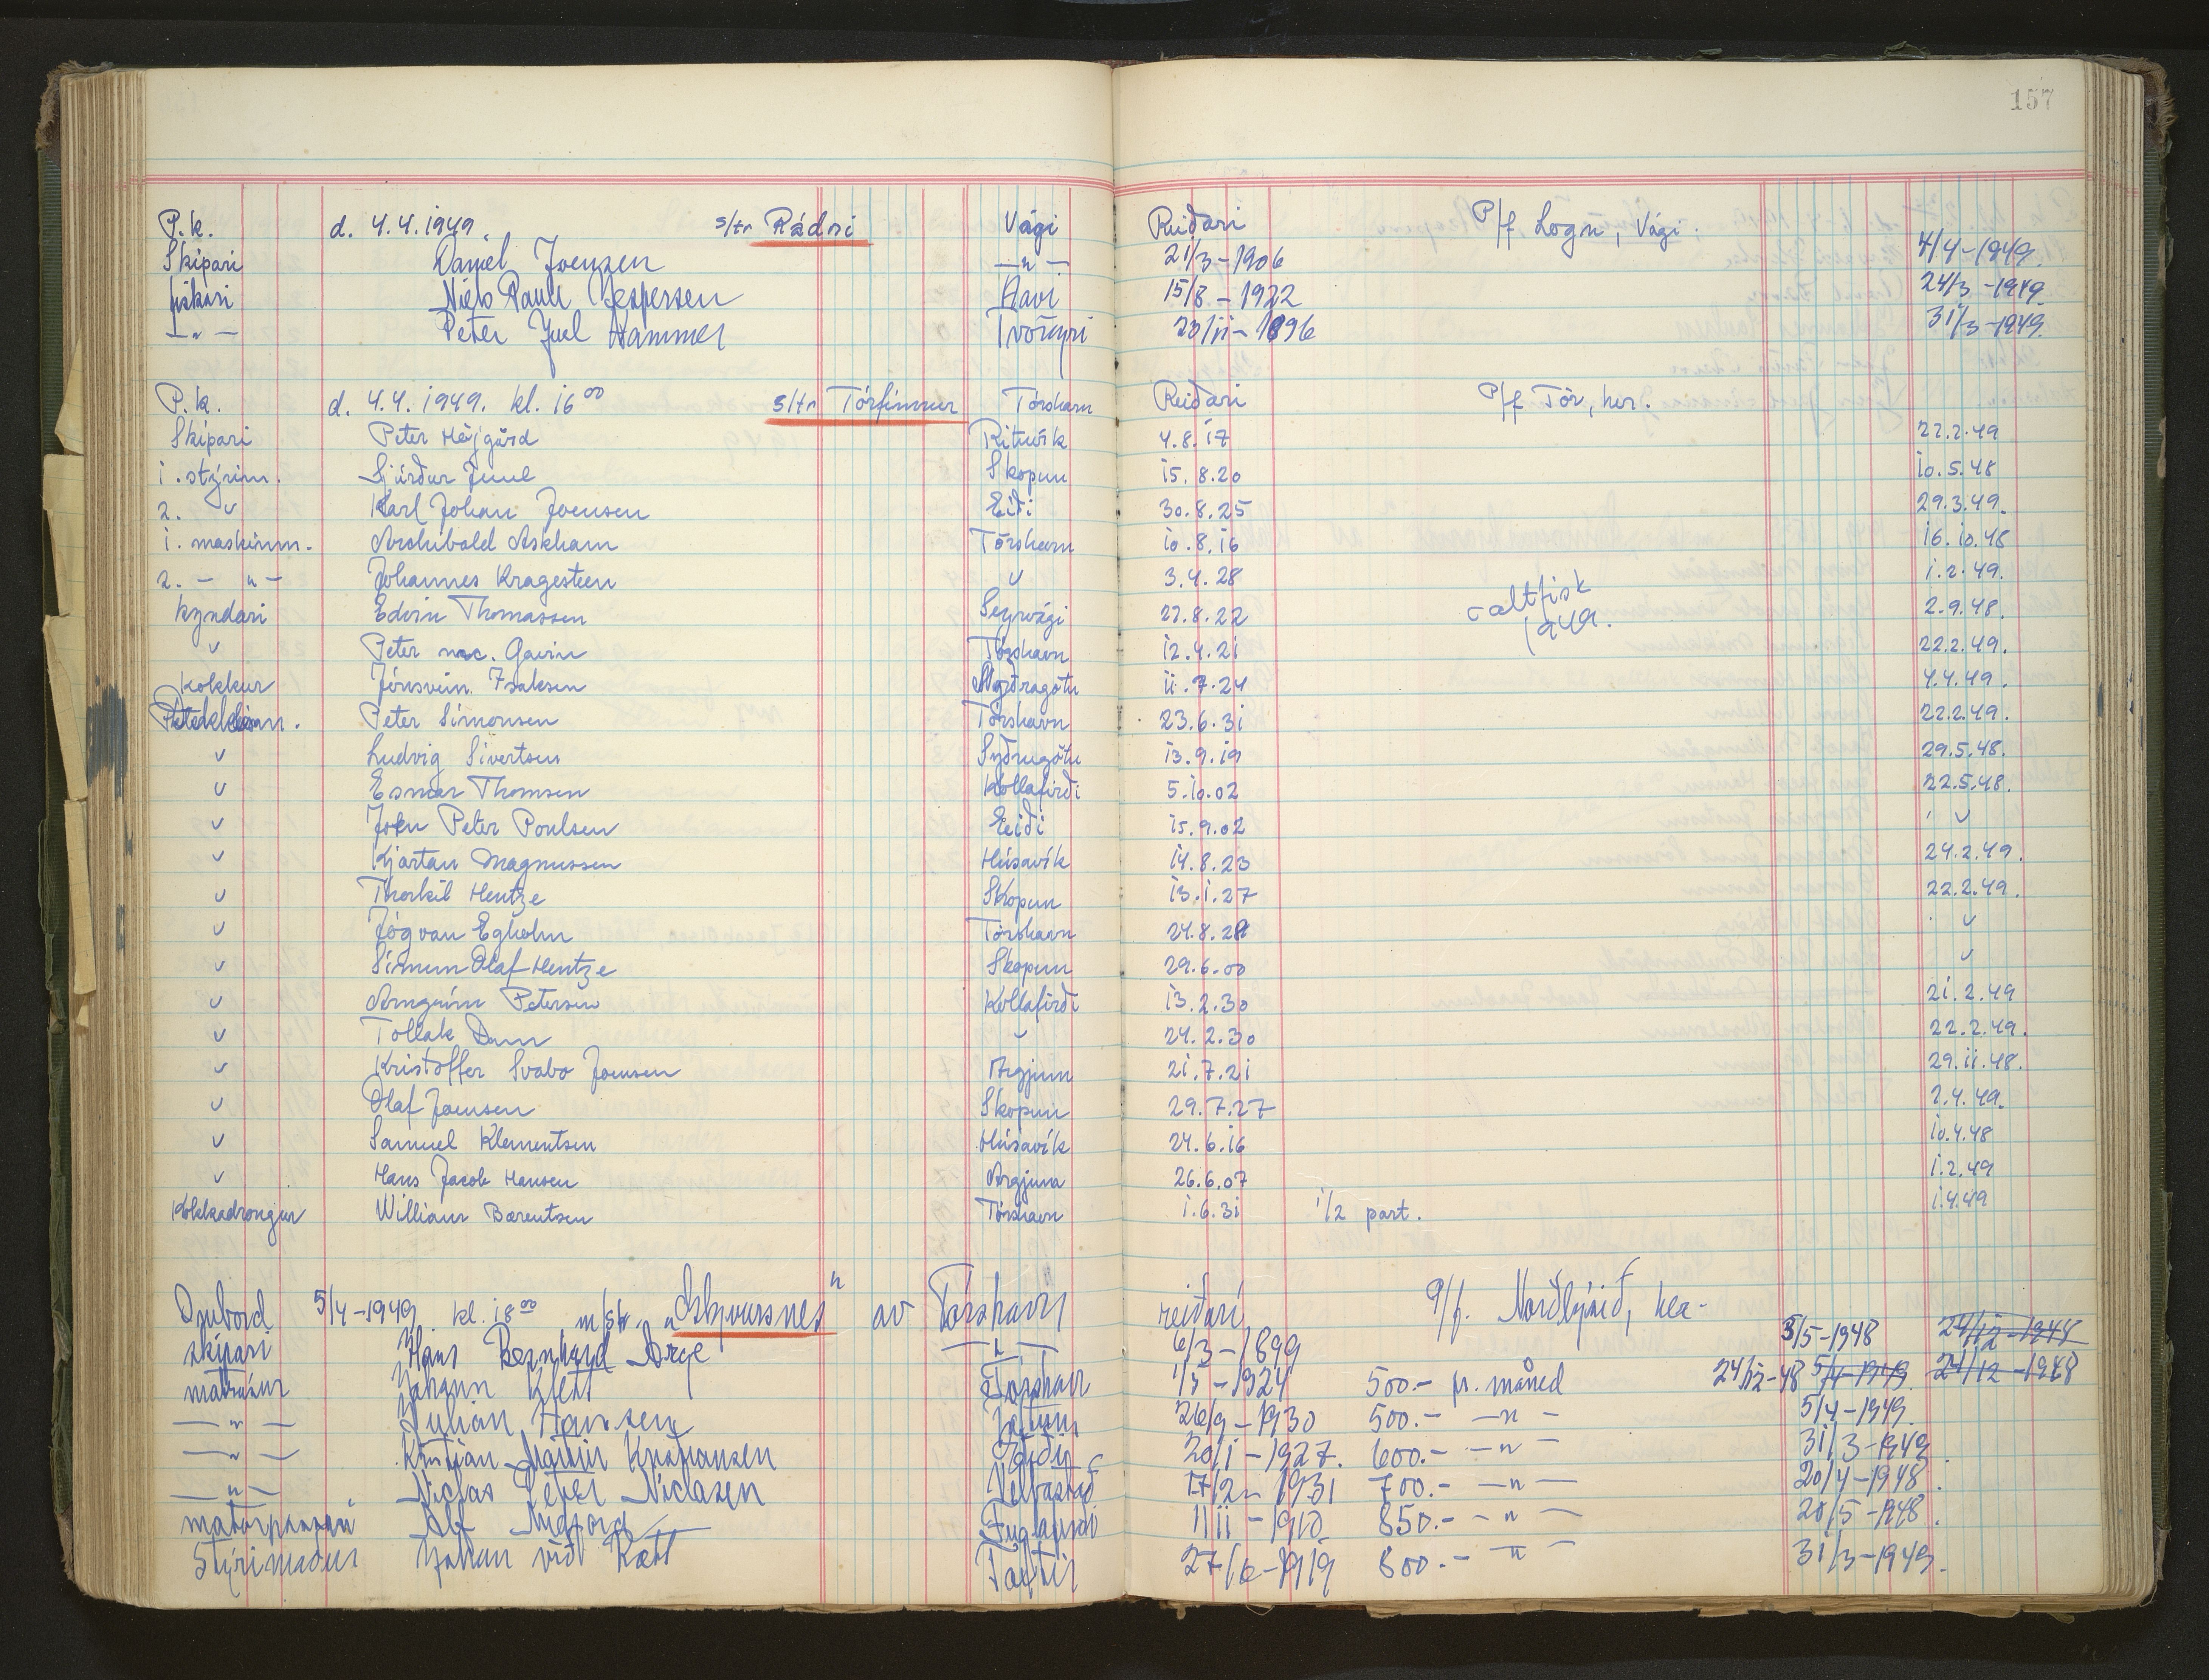 157
P.k. d. 4.4.1949. s/tr Rádni Vági Reiðari P/f Logn, Vági.
Skipari Daniel Joensen —"— 21/3-1906 4/4-1949.
fiskari Niels Paull Jespersen Havi 15/8-1922 24/3-1949.
—"— Peter Juel Hammer Tvöroyri 1896 31/3-1949.
P.k. d. 4.4.1949. kl. 16⁰⁰ s/tr Tórfinnur Tórshavn Reiðari P/f Tór, her.
Skipari Peter Højgård Rituvík 4.8.17 22.2.49
1. stýrim. Sjúrður Juul Skopun 15.8.20 10.5.48
2. " Karl Johan Joensen Eiði 30.8.25 29.3.49.
1. maskinm. Archibald Askham Tórshavn 10.8.16 16.10.48
2. — " — Johannes Kragesteen " 3.4.28 1.2.49.
kyndari Edvin Thomassen Sørvági 22.8.22 saltfisk 2.9.48.
1949.
" Peter mc. Gavin Tórshavn 12.4.21 22.2.49.
Kokkur Jónsvein Isaksen Norðragøtu 11.7.24 4.4.49.
Peter Simonsen Tórshavn 23.6.31 22.2.49.
" Ludvig Sivertsen Syðrugøtu 13.9.19 29.5.48.
" Esmar Thomsen Kollafirði 5.10.02 22.5.48.
" John Peter Poulsen Eiði 15.9.02 "
" Kjartan Magnussen Húsavík 14.8.23 24.2.49.
" Thorkil Hentze Skopun 13.1.27 22.2.49.
" Jógvan Egholm Tórshavn 24.8.28 "
" Simun Olaf Hentze Skopun 29.6.00 "
" Arngrim Petersen Kollafirði 13.2.30 21.2.49
" Tollak Dam " 24.2.30 22.2.49.
" Kristoffer Svabo Joensen Argjum 21.7.21 29.11.48.
" Olaf Joensen Skopun 29.7.27 2.4.49.
" Samuel Klementsen Húsavík 24.6.16 10.4.48
" Hans Jacob Hansen Argjum 26.6.07 1.2.49
Kokkadrongur William Bærentsen Tórshavn 1.6.31 1/2 part. 1.4.49
Umbord 5/4-1949 kl. 18⁰⁰ m/sk. "Askpursnes" av Tórshavn reiðari P/f. Norðlýsið, hea-
skipari Hans Bernhard Arge —"— 6/3-1899 3/5-1948 24/12-1948
matrósur Johann Klett Tórshavn 1/5-1924 500.- pr. måned 24/12-48 5/4-1949 24/12-1948
—"— Julian Hansen 26/9-1930 500.- —"— 5/4-1949.
—"— Kristian Martin Kristiansen 20/1-1927. 600.- —"— 31/3-1949.
—"— Niclas Peter Niclasen Velbastað 17/2-1931 700.- —"— 20/4-1948.
motorpassari Alf Fuglafirði 1/11-1910 850.- —"— 20/5-1948.
Stýrimaður Johan við Kætt Toftir 27/6-1919 800.- —"— 31/3-1949.